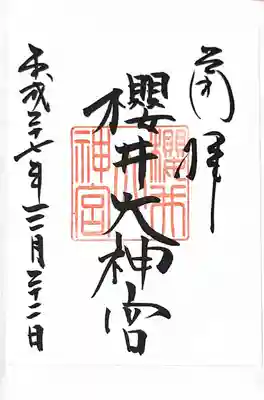 奉拝
櫻井大神宮
櫻井大神宮
平成二十七年三月二十二日